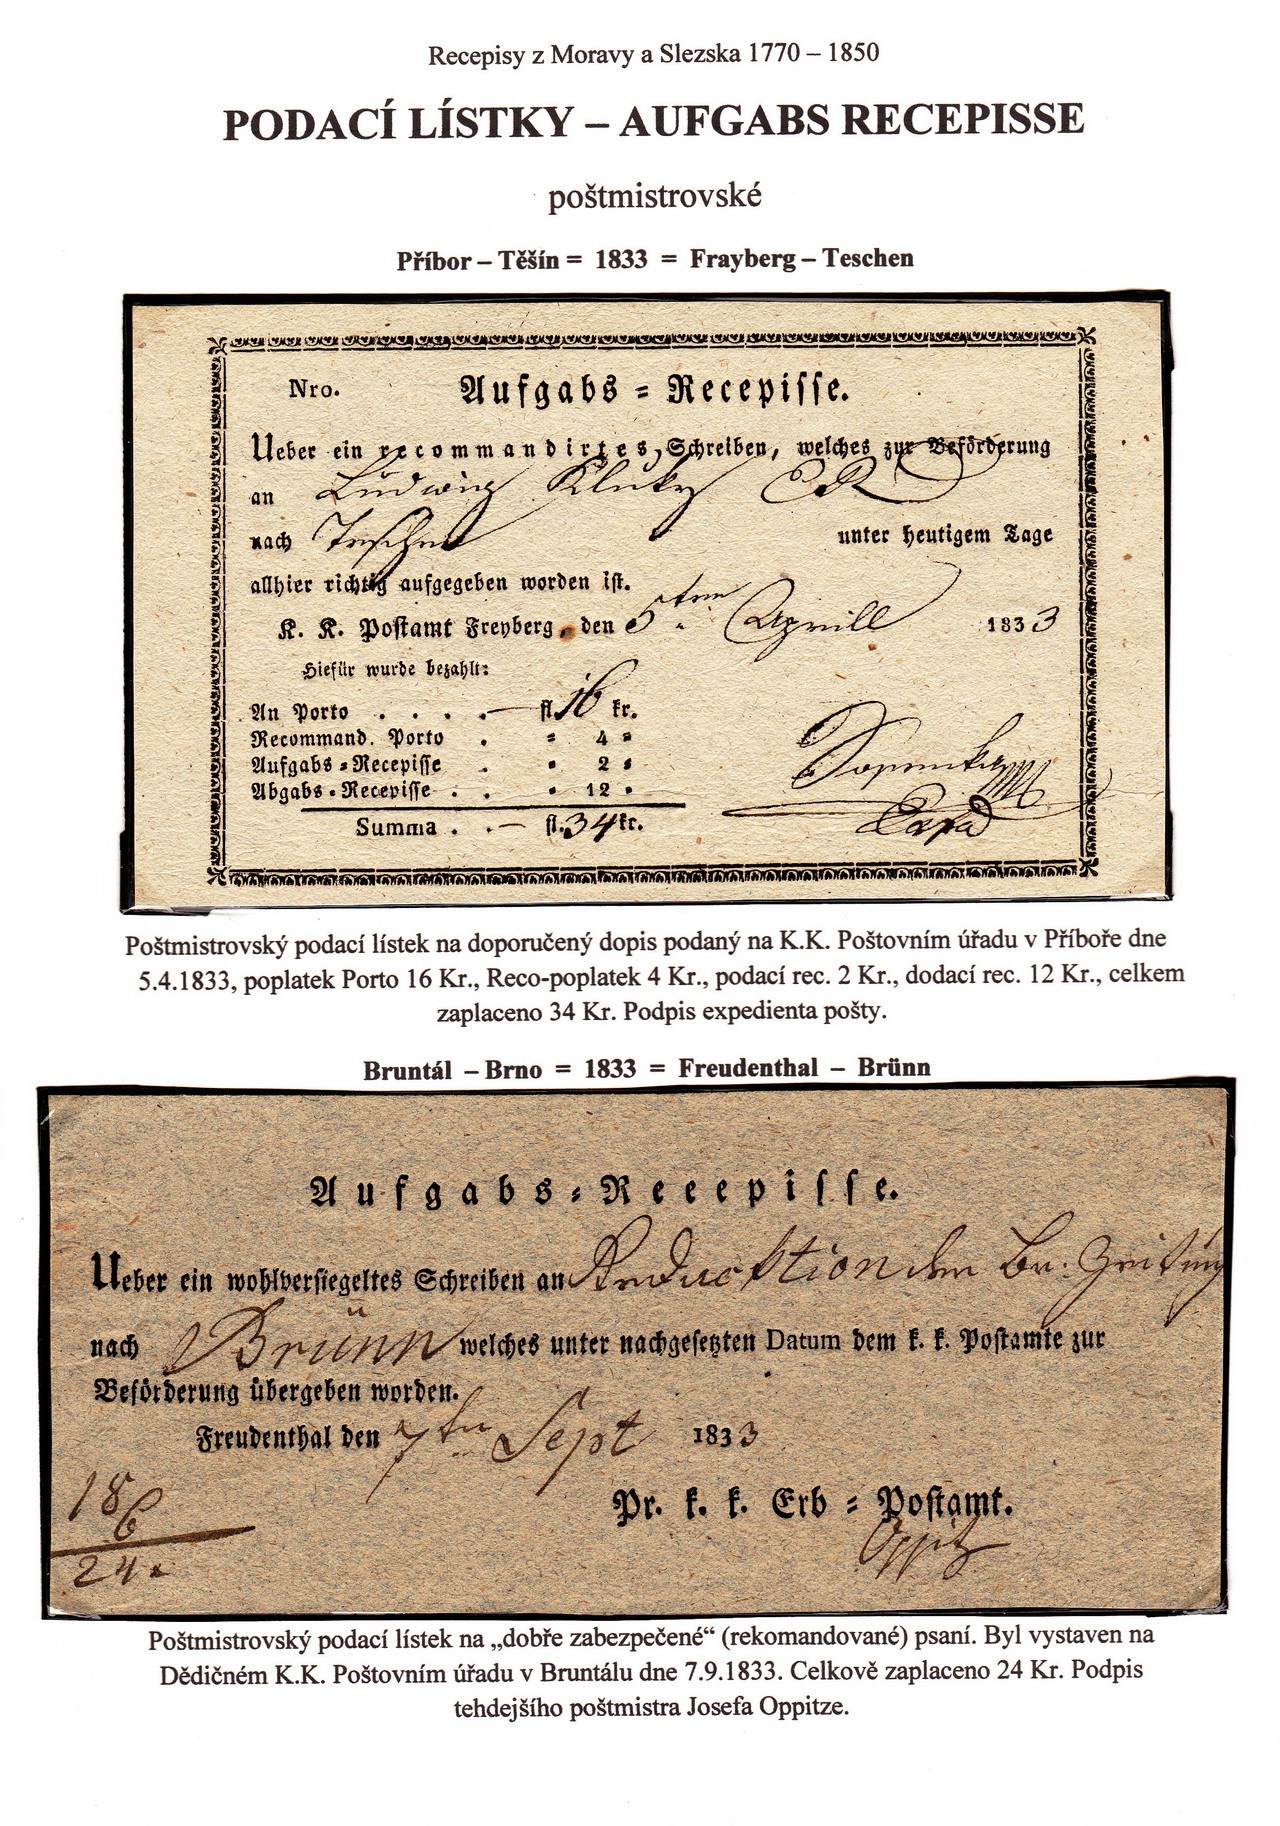 Recepisy z Moravy a Slezska 1770 – 1850
PODACÍ LÍSTKY – AUFGABS RECEPISSE
poštmistrovské
Příbor – Těšín = 1833 = Frayberg – Teschen
Nro. Aufgabs = Recepisse.
Ueber ein recommandirtes Schreiben, welches zur Beförderung
an Ludwig Kluky
nach Teschen unter heutigem Tage
allhier richtig aufgegeben worden ist.
K. K. Postamt Freyberg, den 5ten Aprill 1833
Hiefür wurde bezahlt:
An Porto . . . . — fl. 16 kr.
Recommand. Porto . " 4 "
Aufgabs = Recepisse . " 2 "
Abgabs = Recepisse . . " 12 "
Summa . . — fl. 34 kr.
Poštmistrovský podací lístek na doporučený dopis podaný na K.K. Poštovním úřadu v Příboře dne
5.4.1833, poplatek Porto 16 Kr., Reco-poplatek 4 Kr., podací rec. 2 Kr., dodací rec. 12 Kr., celkem
zaplaceno 34 Kr. Podpis expedienta pošty.
Bruntál – Brno = 1833 = Freudenthal – Brünn
Aufgabs = Recepisse.
Ueber ein wohlversiegeltes Schreiben an Redacktion der Br. Zeitung
nach Brünn welches unter nachgesetzten Datum dem k. k. Postamte zur
Beförderung übergeben worden.
Freudenthal den 7ten Sept 1833
18
6
24
Pr. k. k. Erb = Postamt.
Oppitz
Poštmistrovský podací lístek na „dobře zabezpečené“ (rekomandované) psaní. Byl vystaven na
Dědičném K.K. Poštovním úřadu v Bruntálu dne 7.9.1833. Celkově zaplaceno 24 Kr. Podpis
tehdejšího poštmistra Josefa Oppitze.